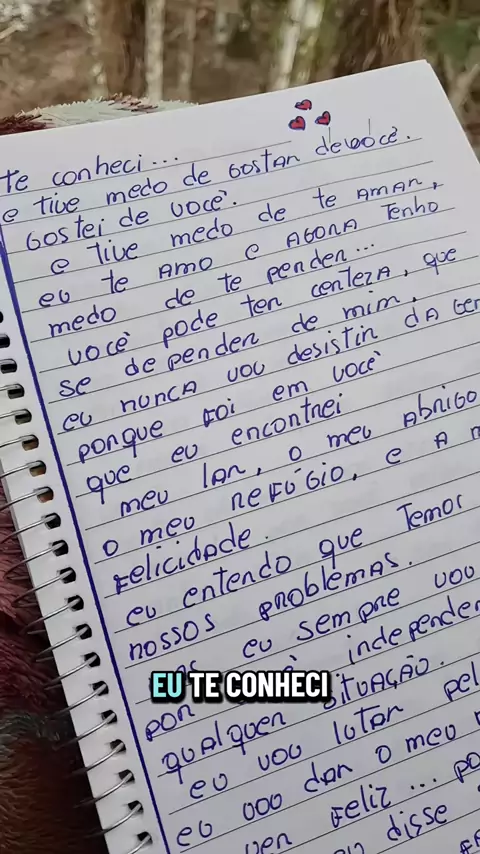 te conheci...
e tive medo de Gostar de você.
Gostei de você.
e tive medo de te AMAR,
eu te AMO e AGORA Tenho
medo de te perder...
você pode ter certeza, que
se depender de mim,
eu nunca vou desistir DA
porque foi em você
que eu encontrei
meu lar, o meu Abrigo
o meu REFÚGIO, e A
Felicidade.
eu entendo que Temos
nossos problemas.
eu sempre vou
por independen
qualquer situação.
EU TE CONHECI
eu vou lutar pel
eu vou dar o meu
ver Feliz... po
disse